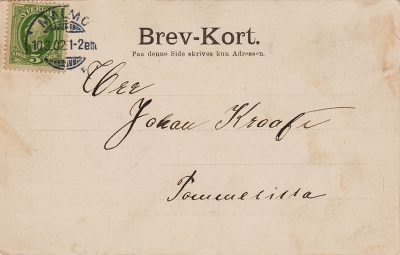 MALMÖ
10.2.02.1-2em
SVERIGE
5
Brev-Kort.
Paa denne Side skrives kun Adressen.
Herr
Johan Kraaft
Tommelilla